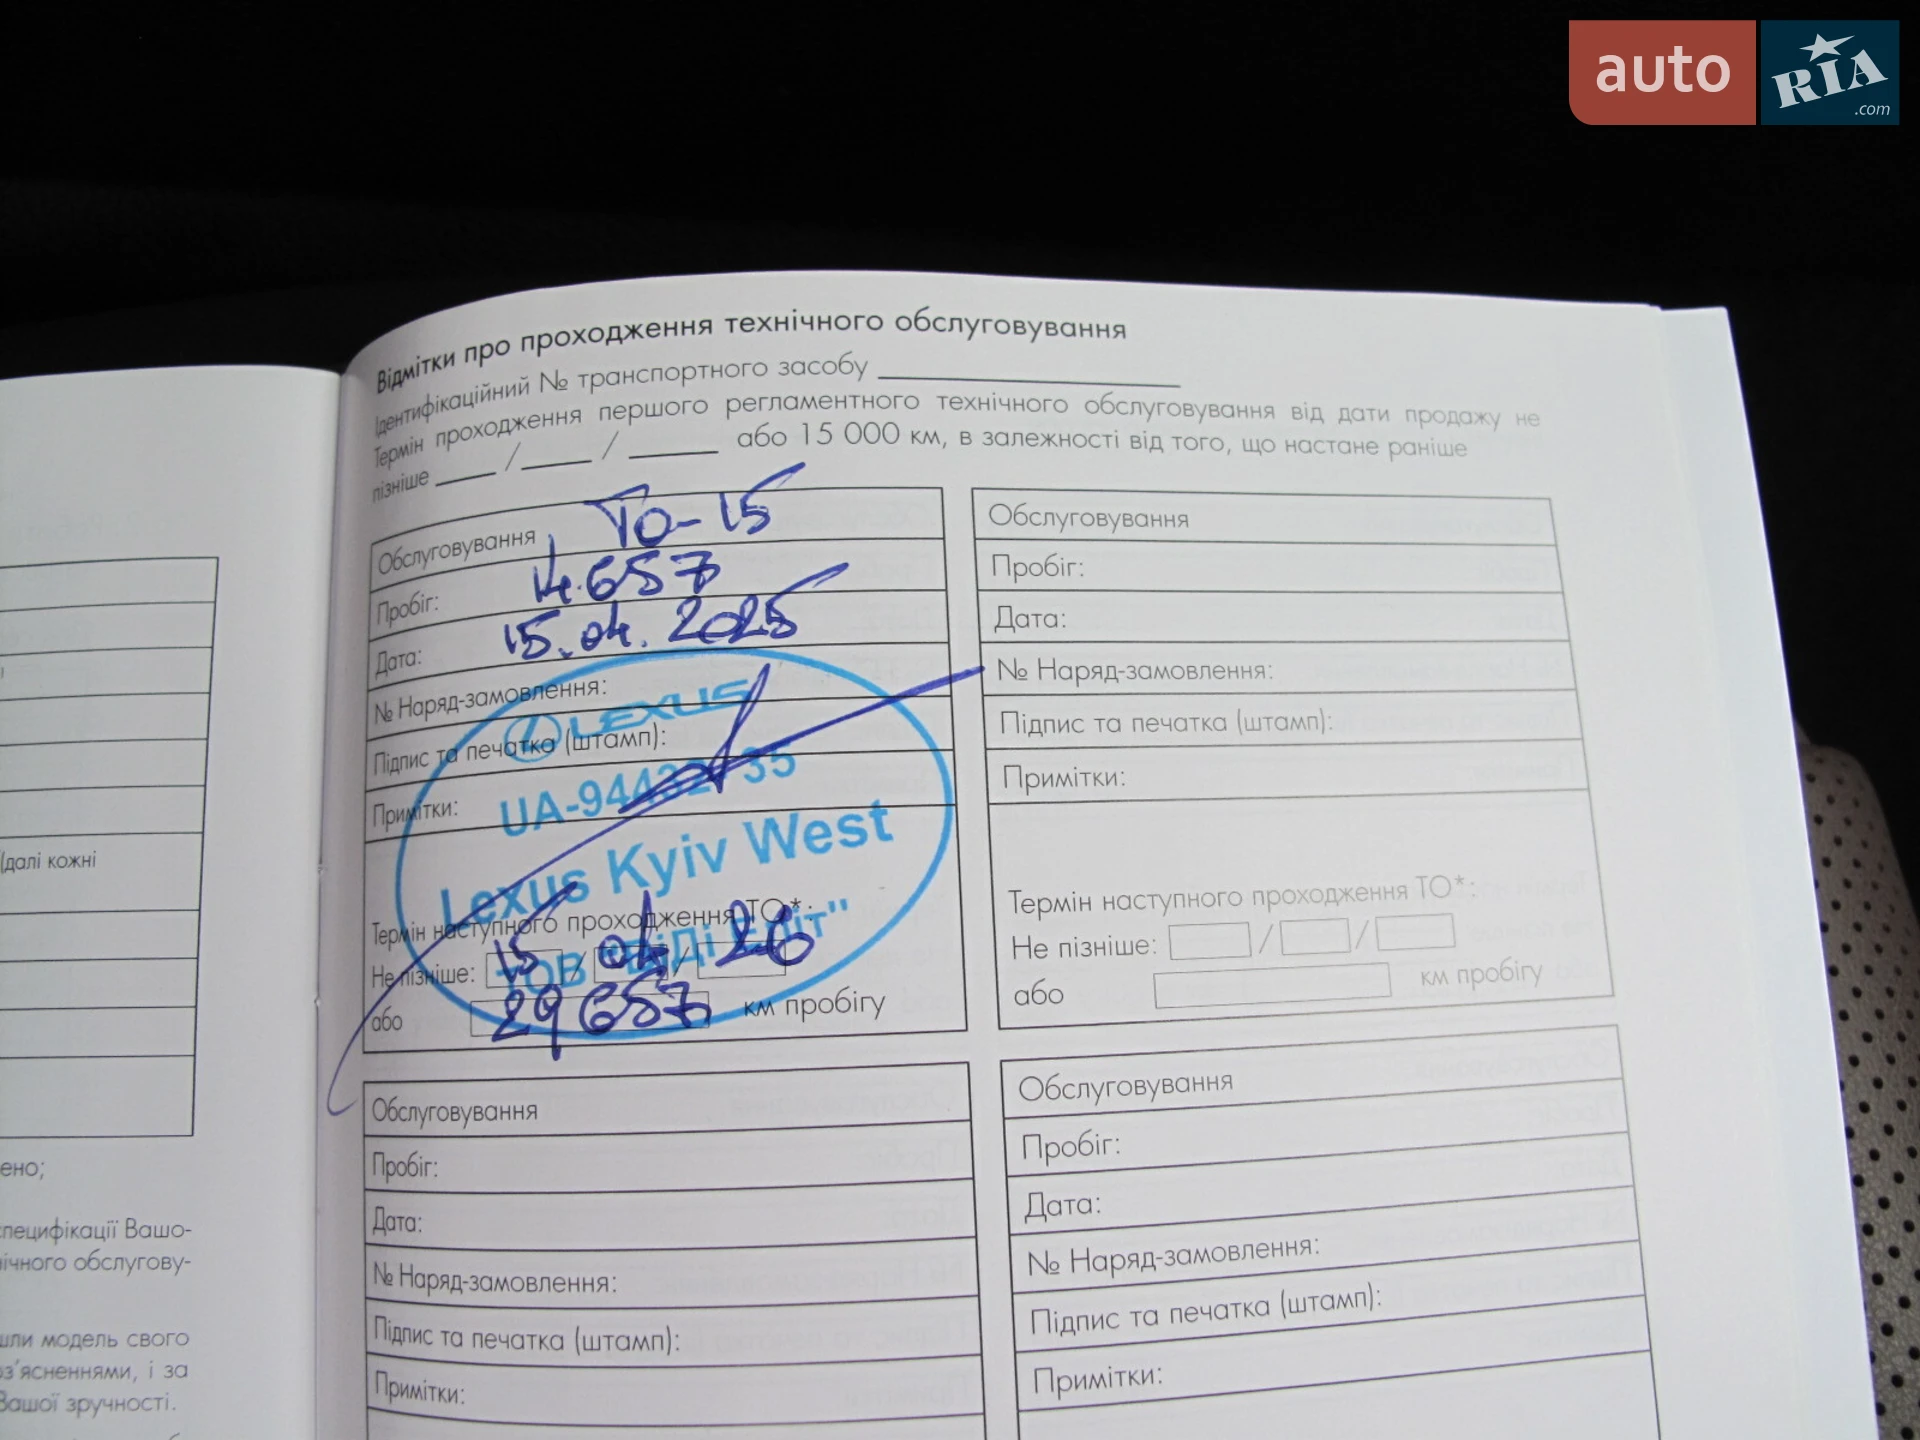 auto RIA.com
Відмітки про проходження технічного обслуговування
Ідентифікаційний № транспортного засобу
Термін проходження першого регламентного технічного обслуговування від дати продажу не
пізніше ___ /___ / ___ або 15 000 км, в залежності від того, що настане раніше
Обслуговування ТО-15
Пробіг: 14.657
Дата: 15.04.2025
№ Наряд-замовлення:
LEXUS
Підпис та печатка (штамп):
Примітки:
Lexus Kyiv West
Термін наступного проходження ТО*:
Не пізніше: 15 / 04 / 26
або 29 657 км пробігу
Обслуговування
Пробіг:
Дата:
№ Наряд-замовлення:
Підпис та печатка (штамп):
Примітки:
Термін наступного проходження ТО*:
Не пізніше: / /
або км пробігу
Обслуговування
Пробіг:
Дата:
№ Наряд-замовлення:
Підпис та печатка (штамп):
Примітки:
Обслуговування
Пробіг:
Дата:
№ Наряд-замовлення:
Підпис та печатка (штамп):
Примітки:
(далі кожні
ено;
специфікації Вашо-
нічного обслугову-
шли модель свого
оз'ясненнями, і за
Вашої зручності.